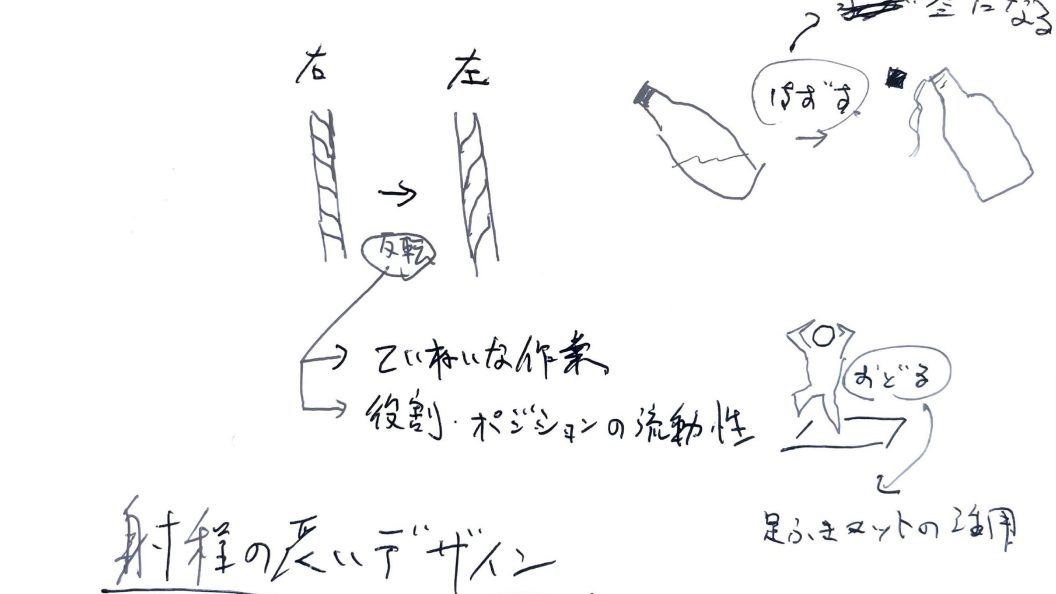 空になる
右 左
はずす
反転
ていねいな作業、
おどる
役割・ポジションの流動性
足ふきマットの
の長いデザイン